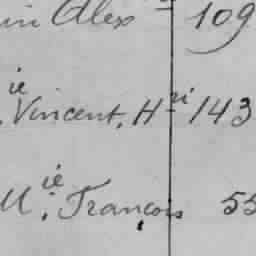 in Alex 109
ie Vincent, Hri 143
M.ie François 55